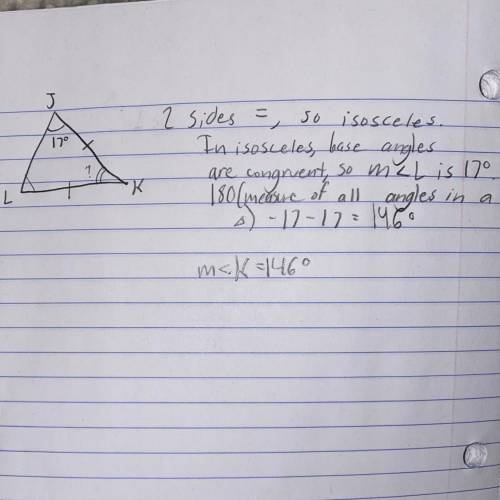 J
17°
?
L
K
2 sides =, so isosceles.
In isosceles, base angles
are congruent, so m<L is 17°.
180(measure of all angles in a
△) -17-17 = 146°
m<K=146°